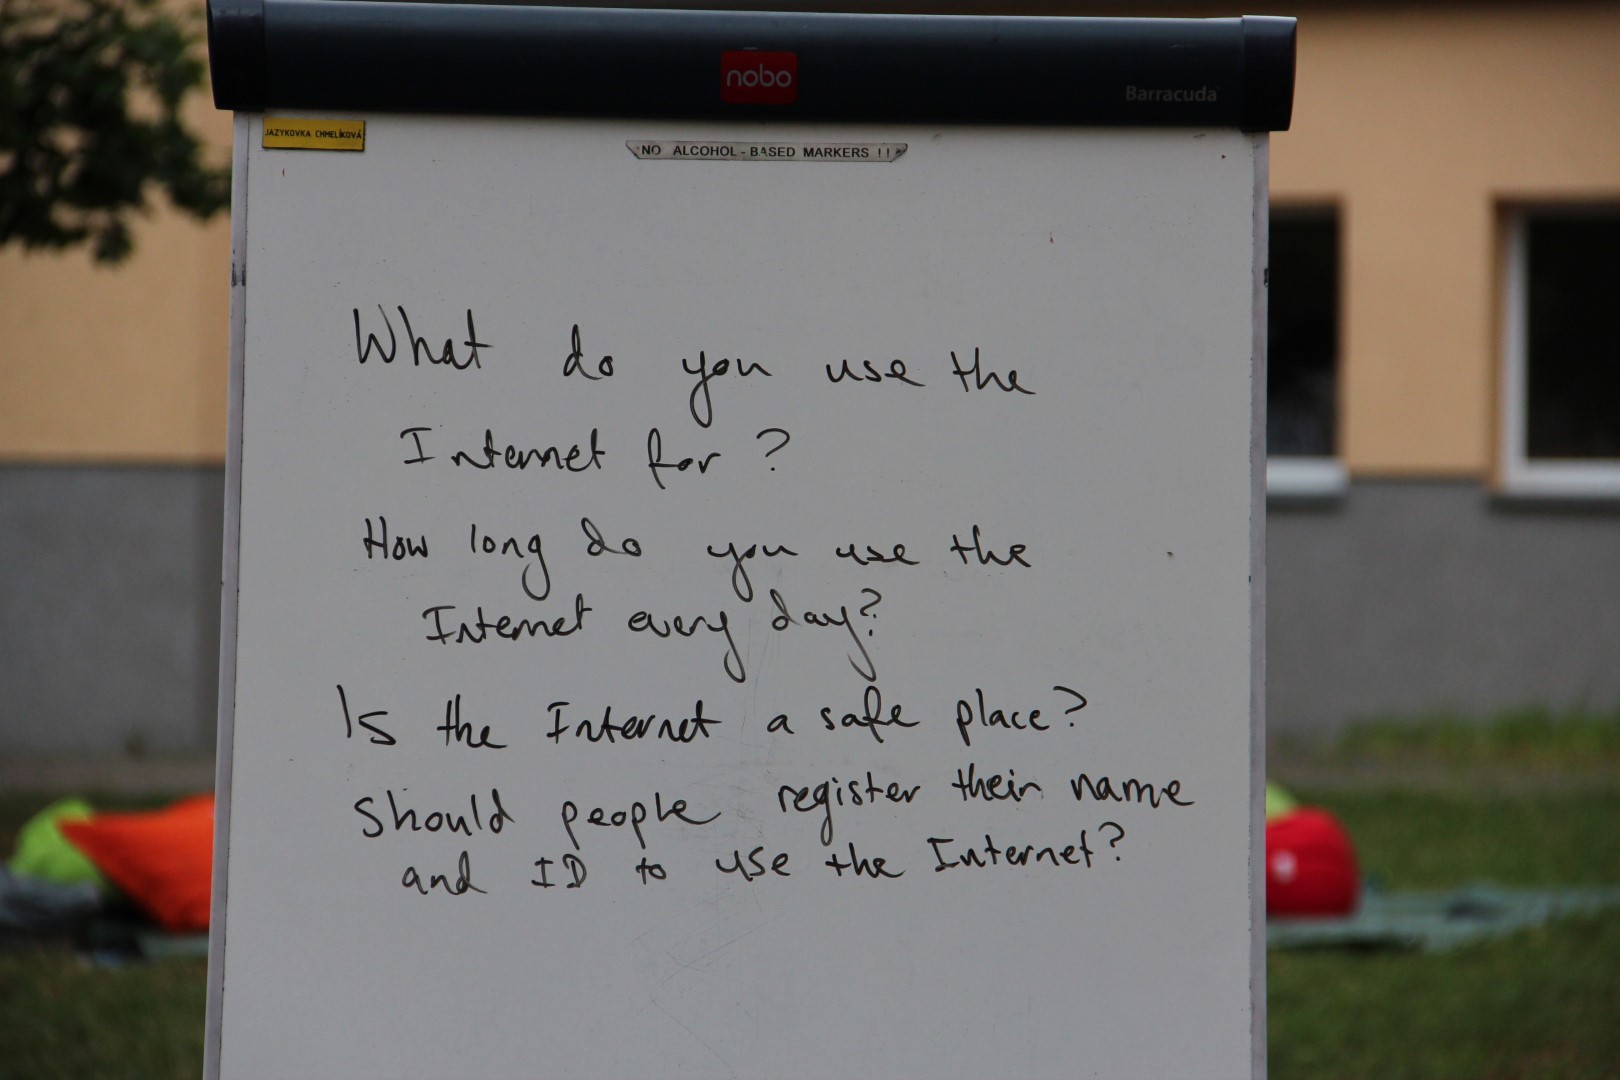 nobo
Barracuda
JAZYKOVKA CHMELÍKOVÁ
NO ALCOHOL-BASED MARKERS !!
What do you use the
Internet for?
How long do you use the
Internet every day?
Is the Internet a safe place?
Should people register their name
and ID to use the Internet?